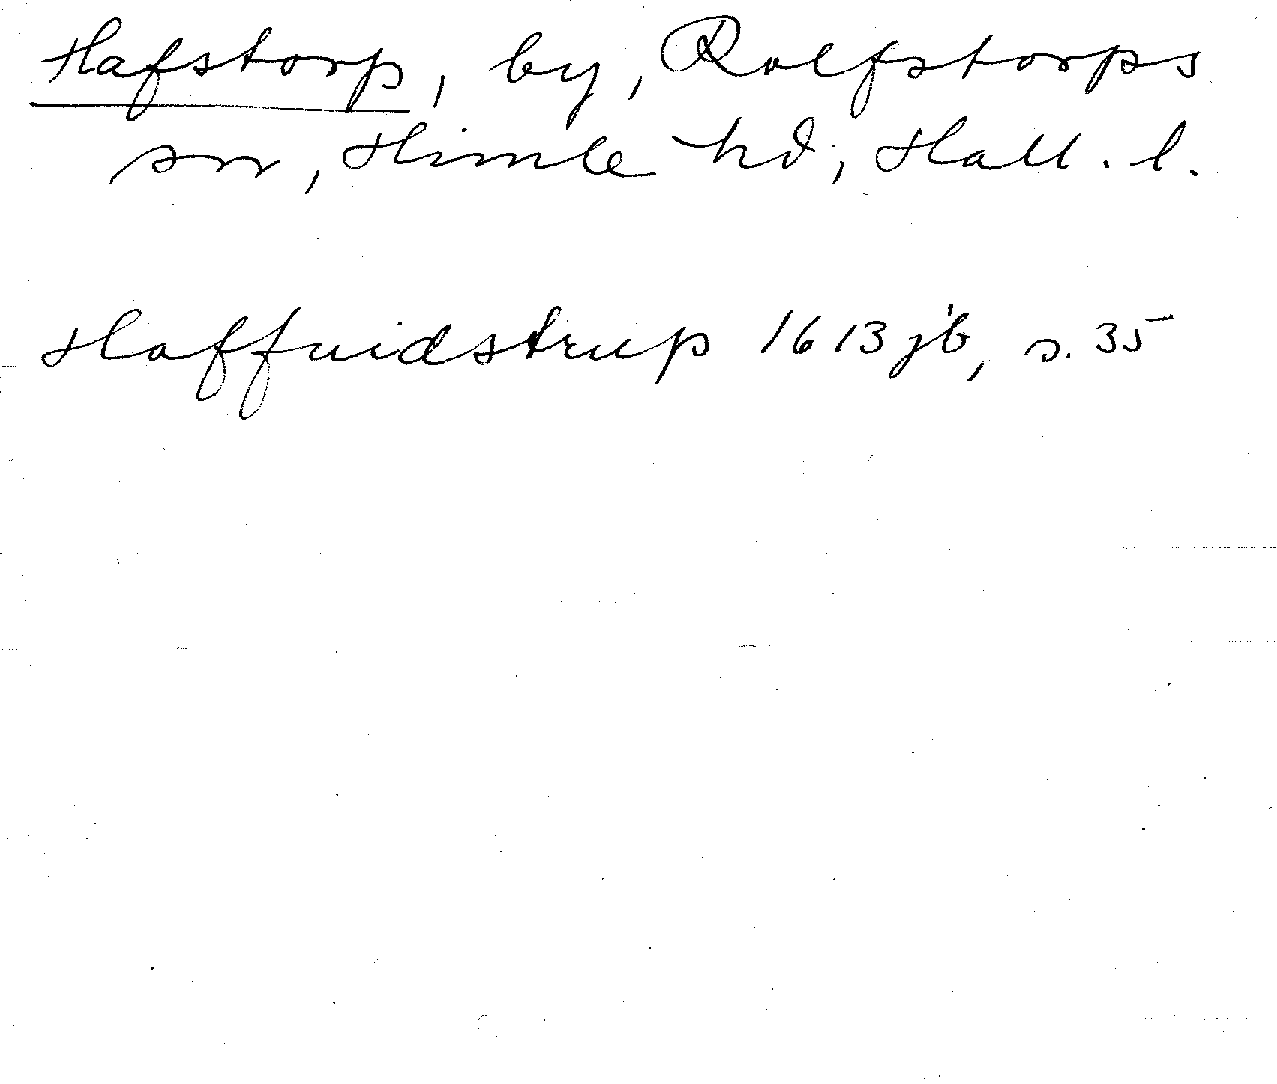 Hafstorp, by, Rolfstorps
sn, Himle hd, Hall. l.
Haffuidstrup 1613 jb, s. 35